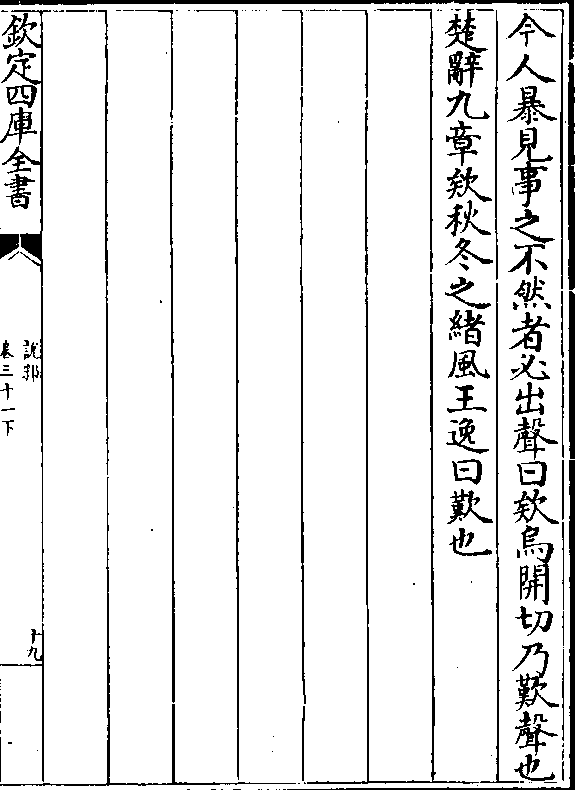 今人暴見事之不然者必出聲曰欸烏開切乃歎聲也
楚辭九章欸秋冬之緒風王逸曰歎也
欽定四庫全書
說郛
卷三十一下
十九